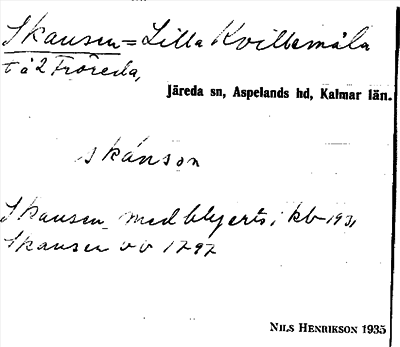 Skansen = Lilla Kvillemåla
t å 2 Fröreda,
Järeda sn, Aspelands hd, Kalmar län.
skánson
Skansen med blyerts i kb 1931
Skansen öv 1797
NILS HENRIKSON 1935